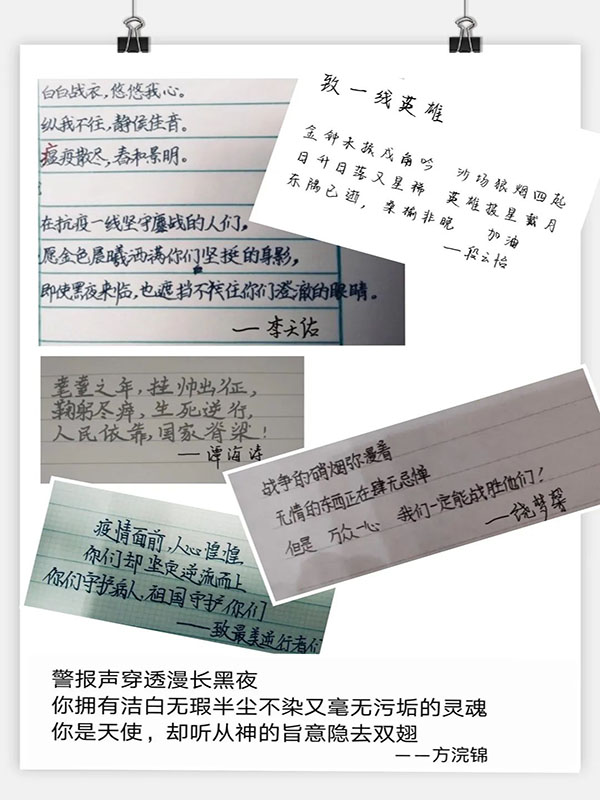 白白战衣，悠悠我心。
纵我不往，静侯佳音。
瘟疫散尽，春和景明。
在抗疫一线坚守鏖战的人们，
愿金色晨曦洒满你们坚挺的身影，
即使黑夜来临，也遮挡不住你们澄澈的眼睛。
——李天佑
致一线英雄
金钟未掖戍角吟 沙场狼烟四起
日升日落又星稀 英雄披星戴月
东隅已逝，桑榆非晚 加油
——段云怡
耄耋之年，挂帅出征，
鞠躬尽瘁，生死逆行，
人民依靠，国家脊梁！
——谭海涛
战争的硝烟弥漫着
无情的东西正在肆无忌惮
但是 万众一心 我们一定能战胜他们！
——饶梦馨
疫情面前，人心惶惶
你们却坚定逆流而上
你们守护病人，祖国守护你们
——致最美逆行者们
警报声穿透漫长黑夜
你拥有洁白无瑕半尘不染又毫无污垢的灵魂
你是天使，却听从神的旨意隐去双翅
——方浣锦